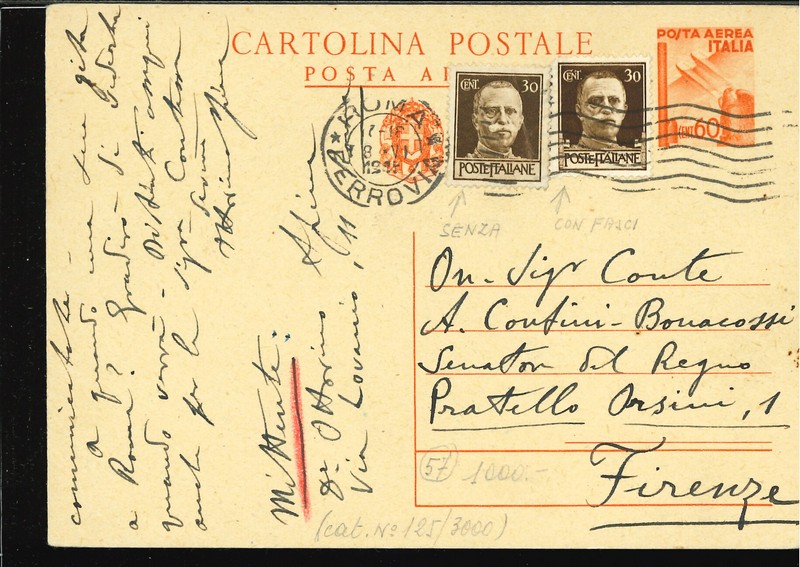 CARTOLINA POSTALE
POSTA AE
POSTA AEREA
ITALIA
CENT 60
CENT. 30
POSTE ITALIANE
CENT. 30
POSTE ITALIANE
ROMA
FERROVIA
SENZA
CON FASCI
On. Sigr Conte
A. Contini-Bonacossi
Senatore del Regno
Pratello Orsini, 1
Firenze
57
1000.-
(cat. Nº 125/3000)
Mittente:
Dr Ottorino
Via Lovanio, 11
comunicate -
a quando una sua gita
a Roma? Gradirò di
quando verrà - Distinti
anche per la Sigra Contessa